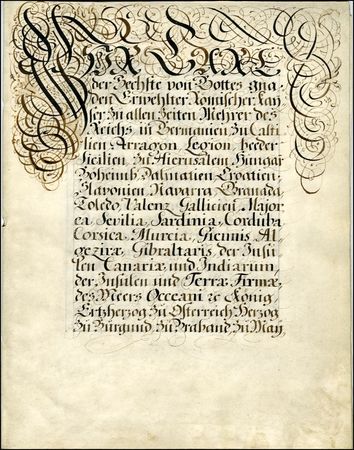 WIR CARL
der Sechste von Gottes gna
den Erwehlter Römischer kay
ser zu allen Zeiten Mehrer des
Reichs in Germanien zu Casti
lien Arragon Legion beeder
Sicilien zu Hierusalem Hungar
Boheimb Dalmatien Croatien
Slavonien Navarra Granada
Toledo Valenz Gallicien Major
ca Sevilia Sardinia Corduba
Corsica Murcia Giennis Al
gezira Gibraltaris der Insu
len Canariæ und Indiarum
der Insulen und Terræ Firmæ
des Meers Occeani &c König
Ertzherzog zu Osterreich Herzog
zu Burgund zu Braband zu May